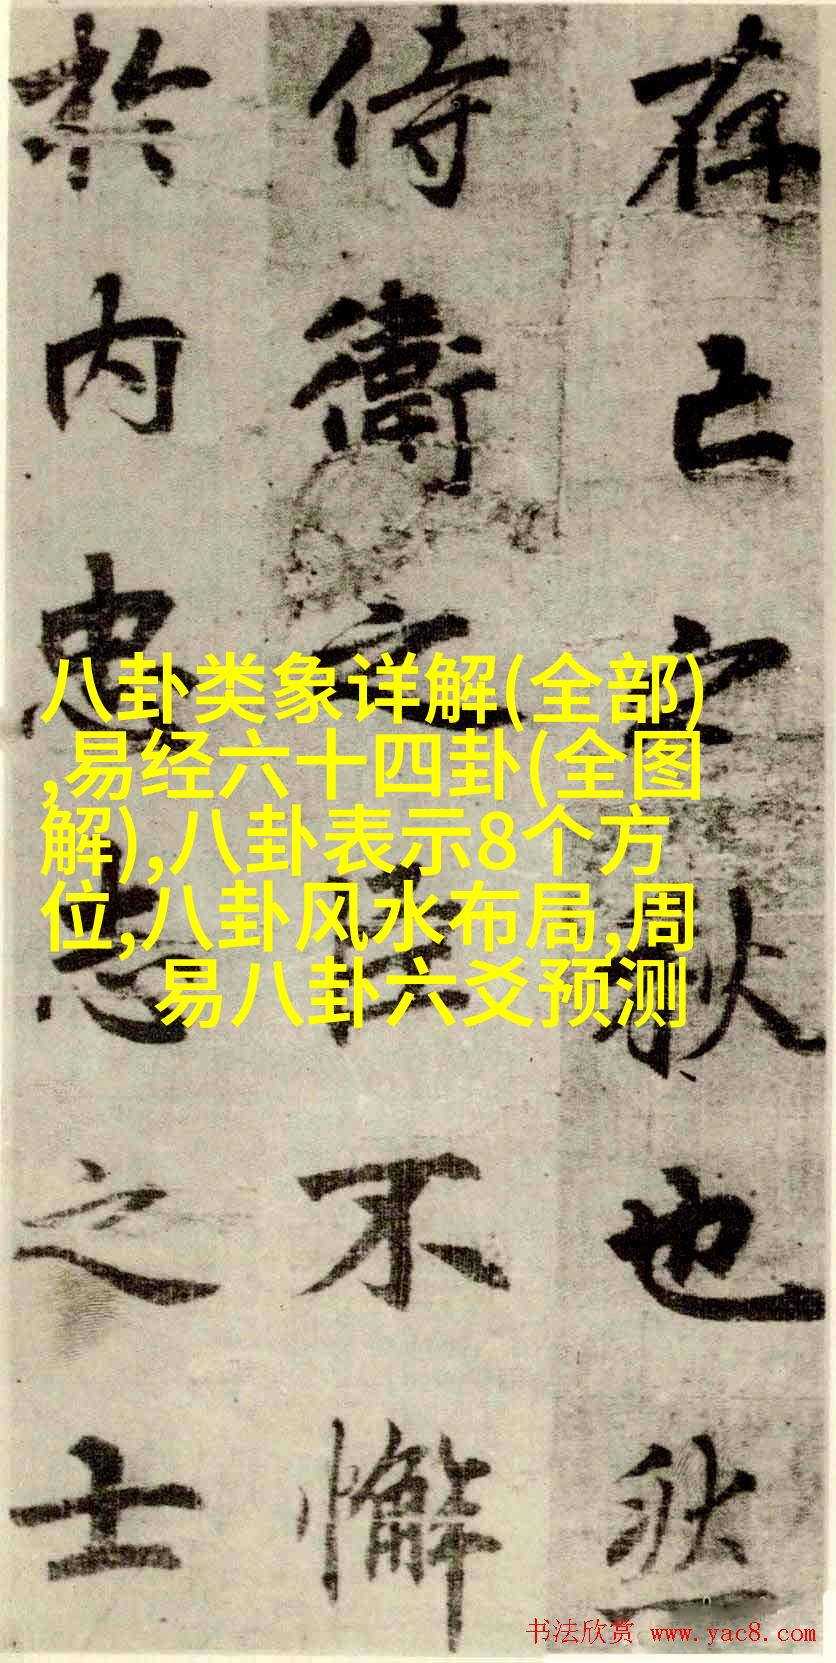 存亡之秋也然
侍衛之臣不懈
於内忠志之士
八卦类象详解(全部)
,易经六十四卦(全图
解),八卦表示8个方
位,八卦风水布局,周
易八卦六爻预测
书法欣赏 www.yac8.com